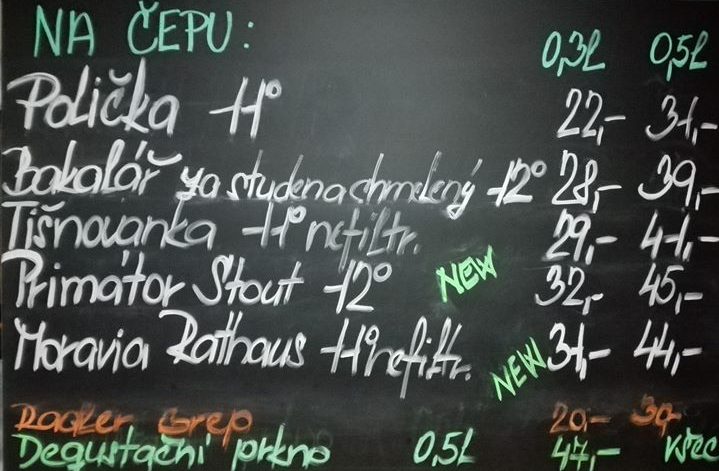 NA ČEPU: 0,3l 0,5l
Polička 11° 22,- 31,-
Bakalář za studena chmelený 12° 28,- 39,-
Tišnovanka 11° nefiltr. 29,- 41,-
Primátor Stout 12° NEW 32,- 45,-
Moravia Rathaus 11° nefiltr. NEW 31,- 44,-
Grep 20,- 30,-
Degustační prkno 0,5l 47,- všec